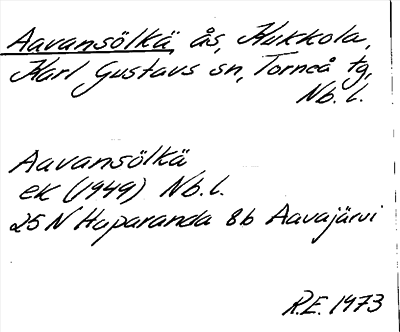 Aavansölkä, ås, Kukkola,
Karl Gustavs sn, Torneå tg,
Nb. l.
Aavansölkä
ek (1949) Nb. l.
25 N Haparanda 8b Aavajärvi
R.E. 1973